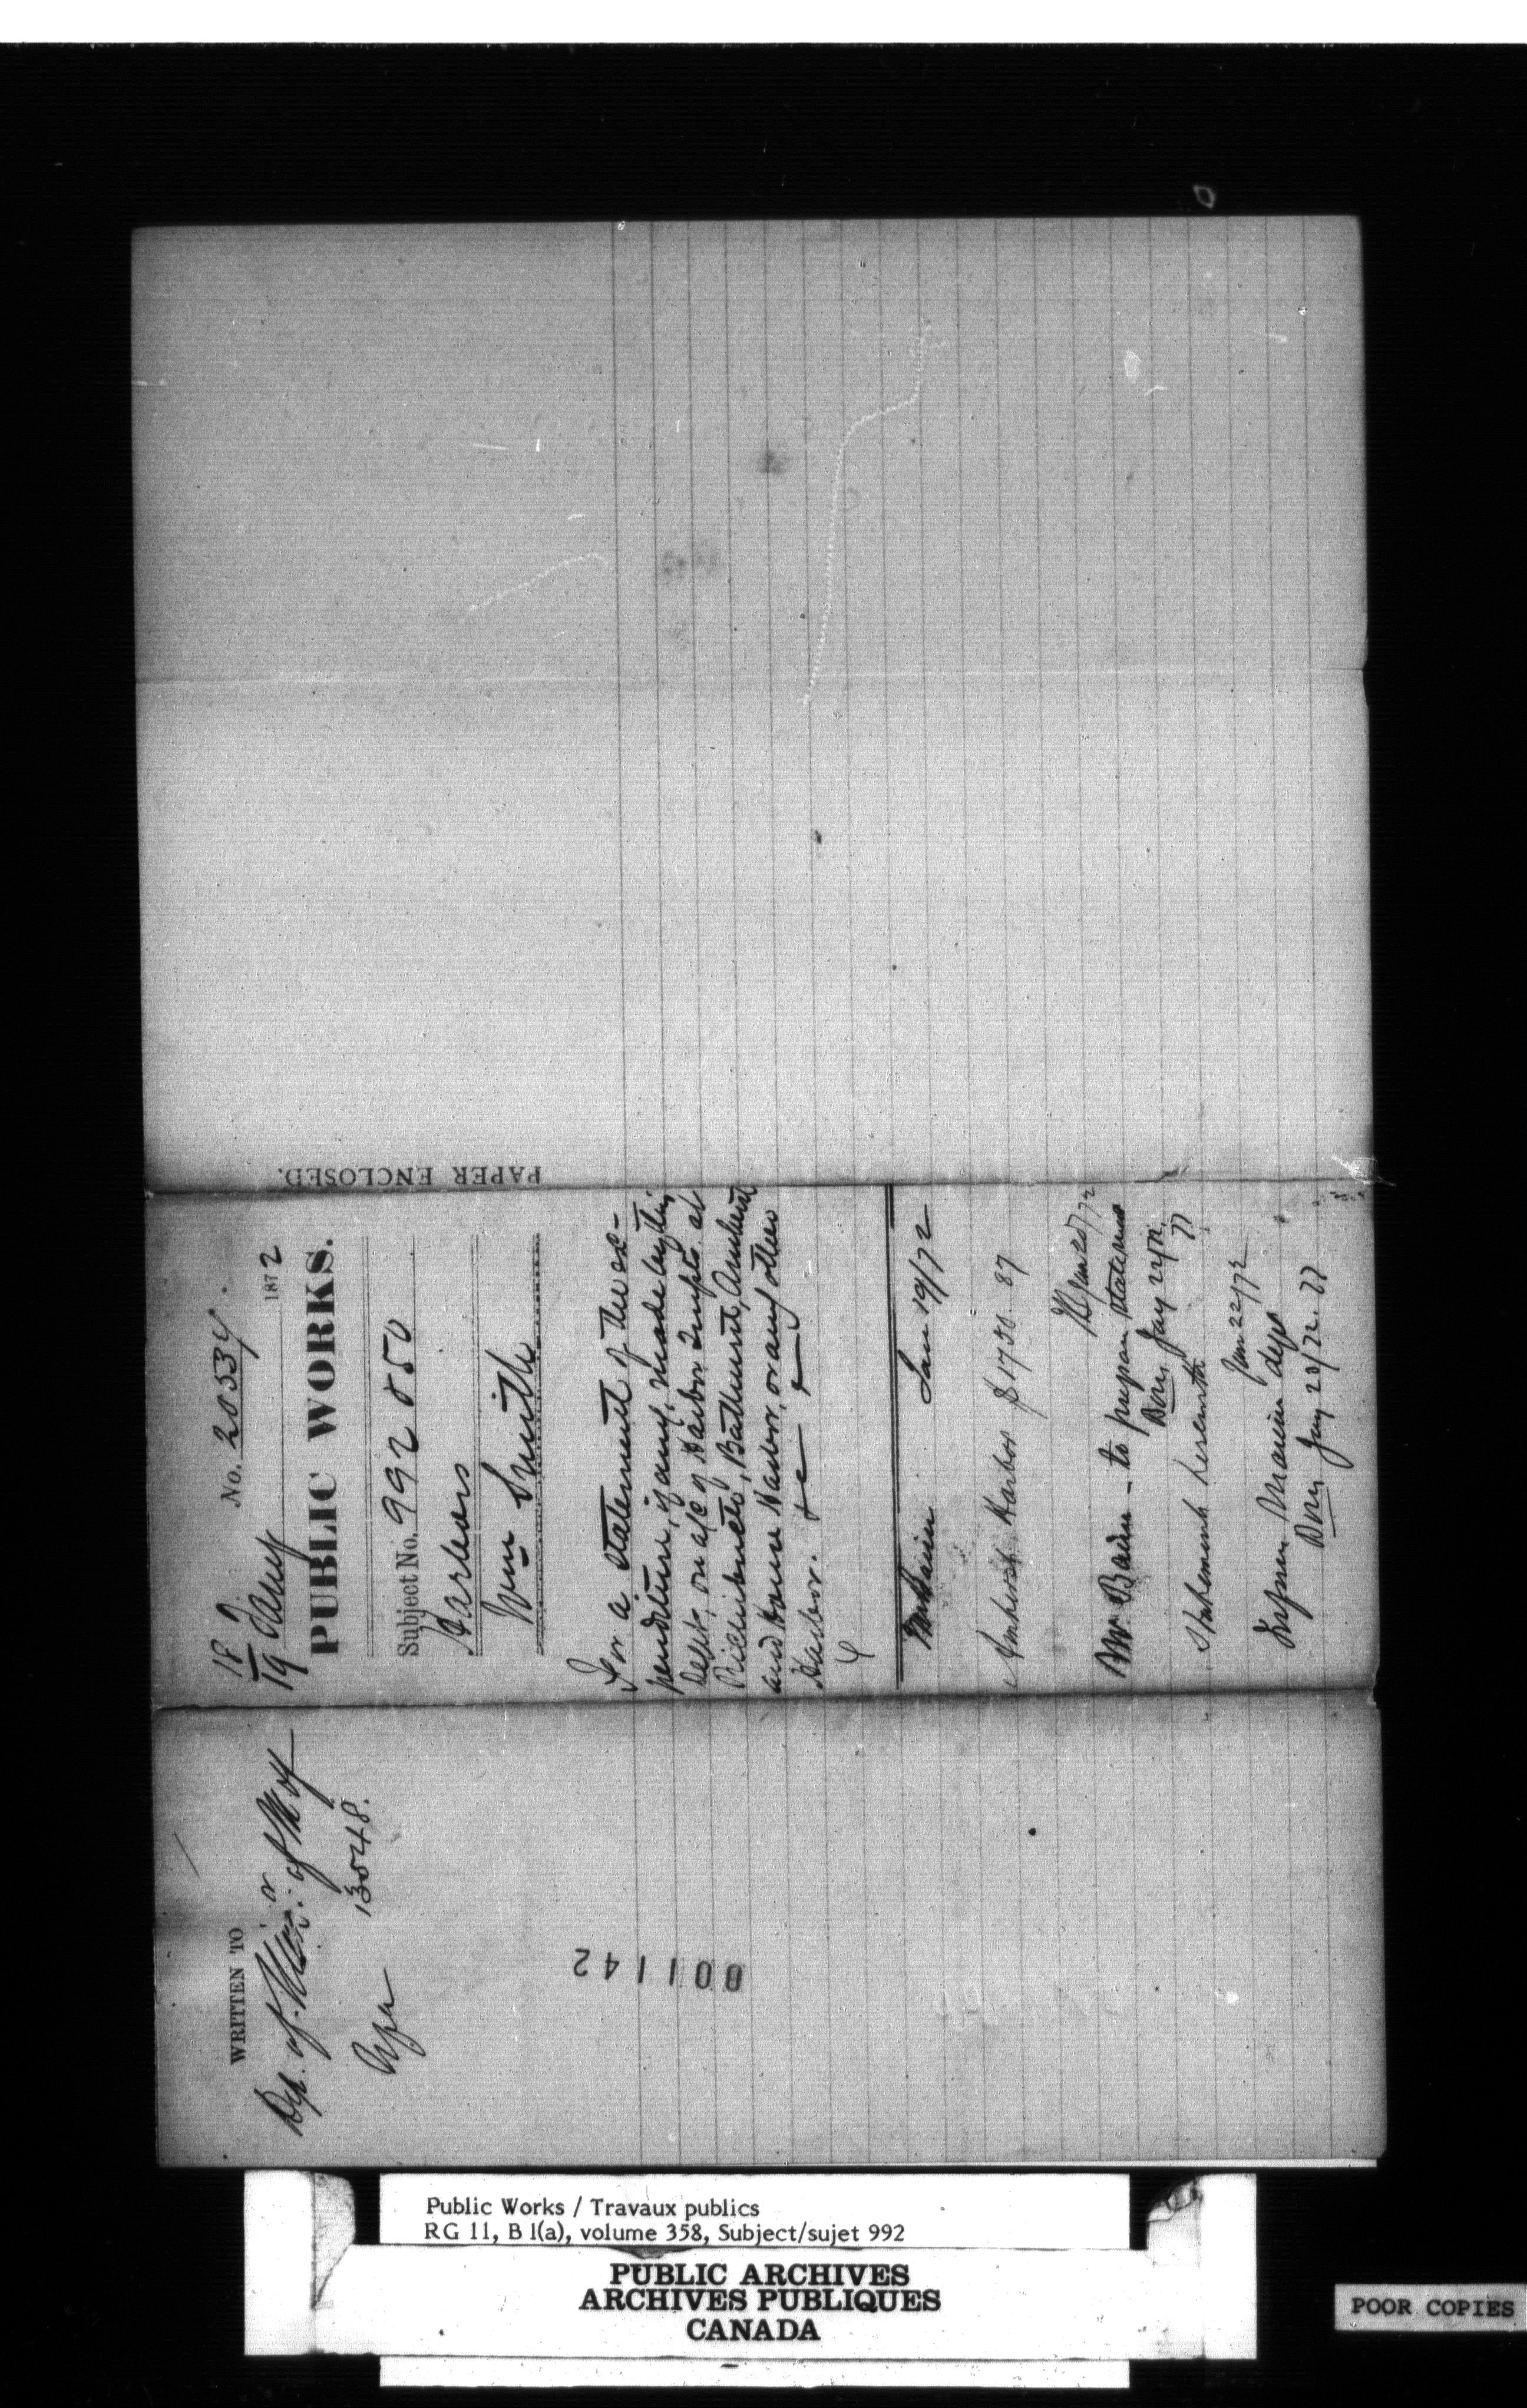 WRITTEN TO
Dep. of
13548.
001142
18
19 Jany 1872
No. 20534.
PUBLIC WORKS.
Subject No. 992 850
Harbors
Wm Smith
For a statement of the ex-
penditure, if any, made by this
Dept, on a/c of Harbor Impts. at
Richibucto, Bathurst, Amherst
and House Harbor, or any other
Harbor.
Jan 19/72
Amherst Harbor $1750.87
Jan 20/72
Mr Baine - to prepare statement
Jany 22/72.
Statement herewith
Jan 22/72
Inform Marine dept
Jany 23/72.
PAPER ENCLOSED.
Public Works / Travaux publics
RG 11, B 1(a), volume 358, Subject/sujet 992
PUBLIC ARCHIVES
ARCHIVES PUBLIQUES
CANADA
POOR COPIES